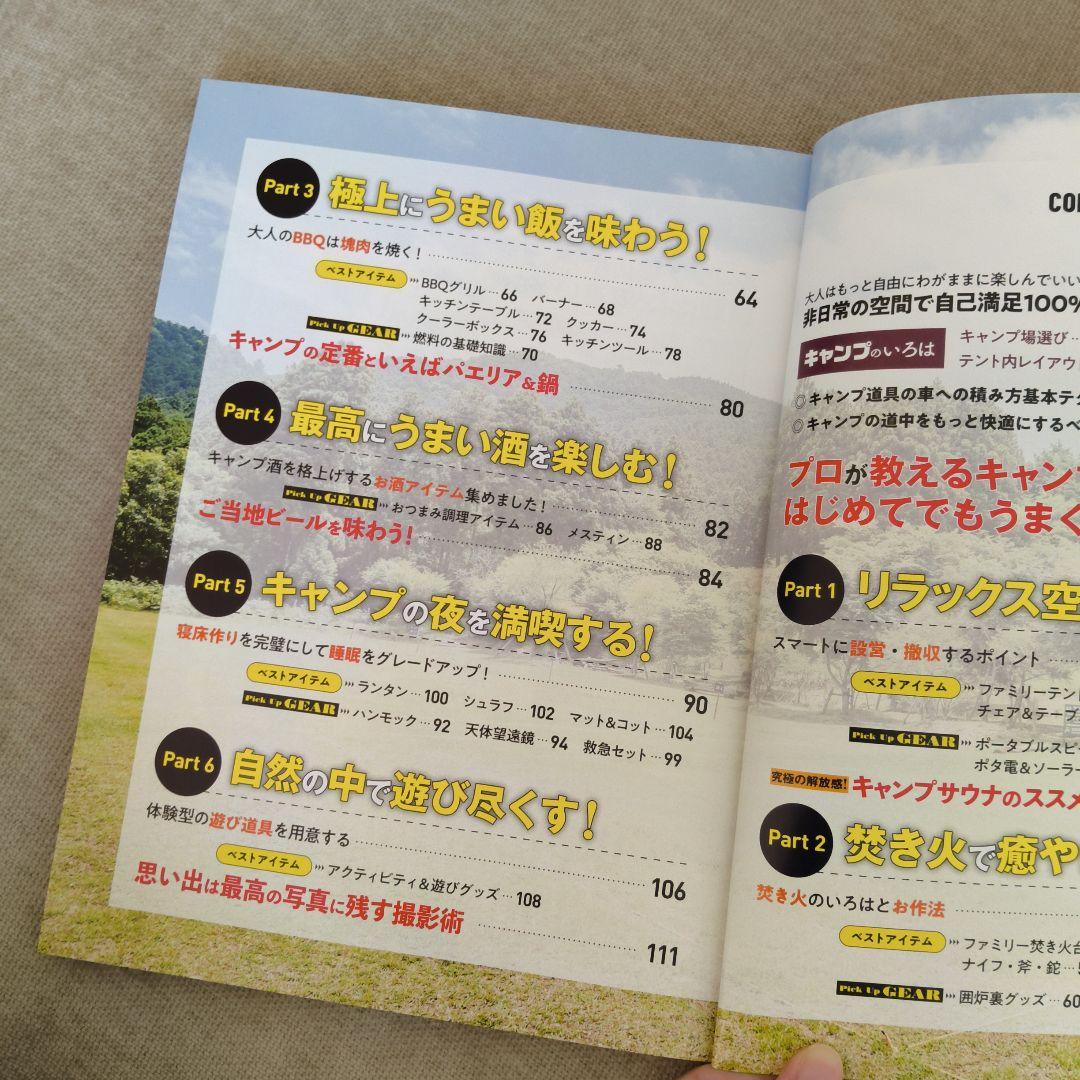 Part 3 極上にうまい飯を味わう!
大人のBBQは塊肉を焼く! 64
ベストアイテム BBQグリル…66 バーナー…68
キッチンテーブル…72 クッカー…74
クーラーボックス…76 キッチンツール…78
Pick Up GEAR 燃料の基礎知識…70
キャンプの定番といえばパエリア&鍋 80
Part 4 最高にうまい酒を楽しむ!
キャンプ酒を格上げするお酒アイテム集めました! 82
Pick Up GEAR おつまみ調理アイテム…86 メスティン…88
ご当地ビールを味わう! 84
Part 5 キャンプの夜を満喫する!
寝床作りを完璧にして睡眠をグレードアップ! 90
ベストアイテム ランタン…100 シュラフ…102 マット&コット…104
Pick Up GEAR ハンモック…92 天体望遠鏡…94 救急セット…99
Part 6 自然の中で遊び尽くす!
体験型の遊び道具を用意する 106
ベストアイテム アクティビティ&遊びグッズ…108
思い出は最高の写真に残す撮影術 111
CO
大人はもっと自由にわがままに楽しんでいい
非日常の空間で自己満足100%
キャンプのいろは キャンプ場選び…
テント内レイアウ
◎キャンプ道具の車への積み方基本テク
◎キャンプの道中をもっと快適にするべ
プロが教えるキャン
はじめてでもうまく
Part 1 リラックス空
スマートに設営・撤収するポイント
ベストアイテム ファミリーテン
チェア&テーブ
Pick Up GEAR ポータブルスピ
ポタ電&ソーラー
究極の解放感! キャンプサウナのススメ
Part 2 焚き火で癒や
焚き火のいろはとお作法
ベストアイテム ファミリー焚き火台
ナイフ・斧・鉈…
Pick Up GEAR 囲炉裏グッズ…60